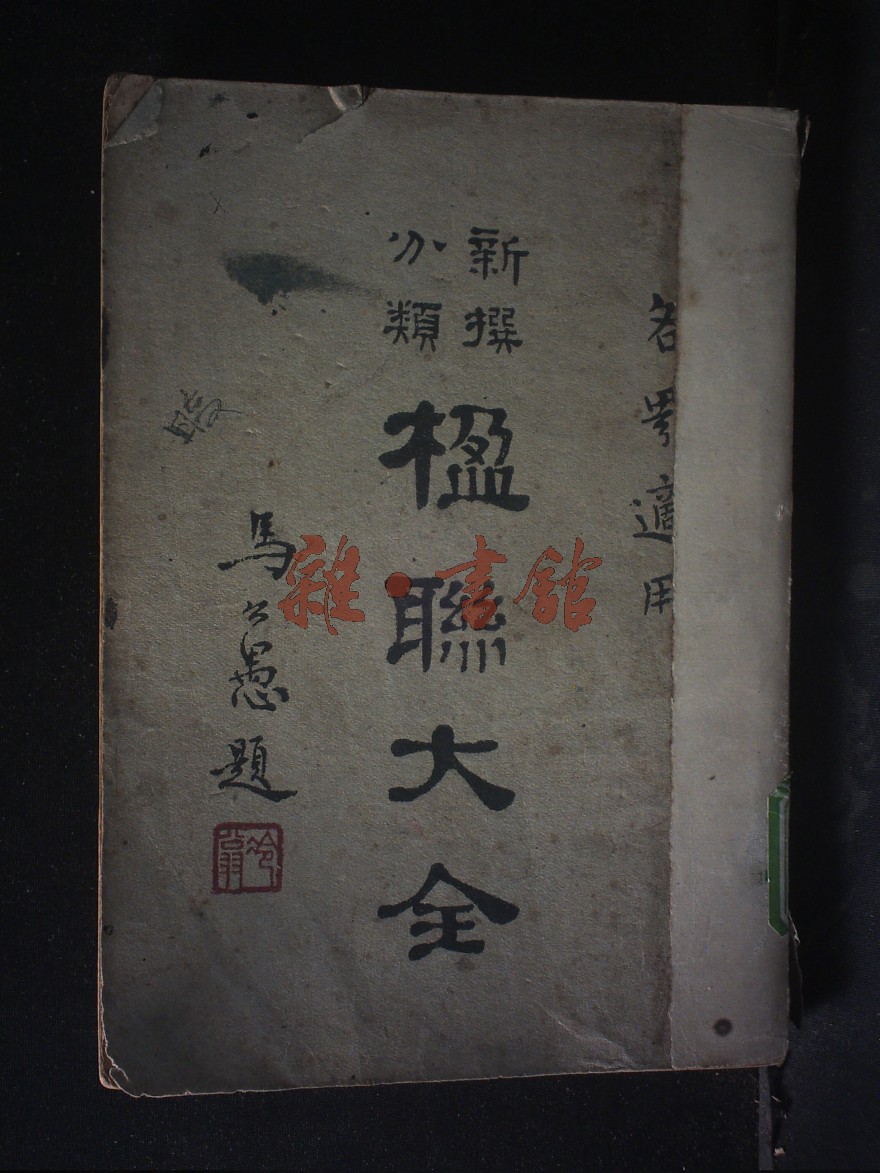 各界適用
新撰
分類
楹聯大全
馬公愚題
雜·書館